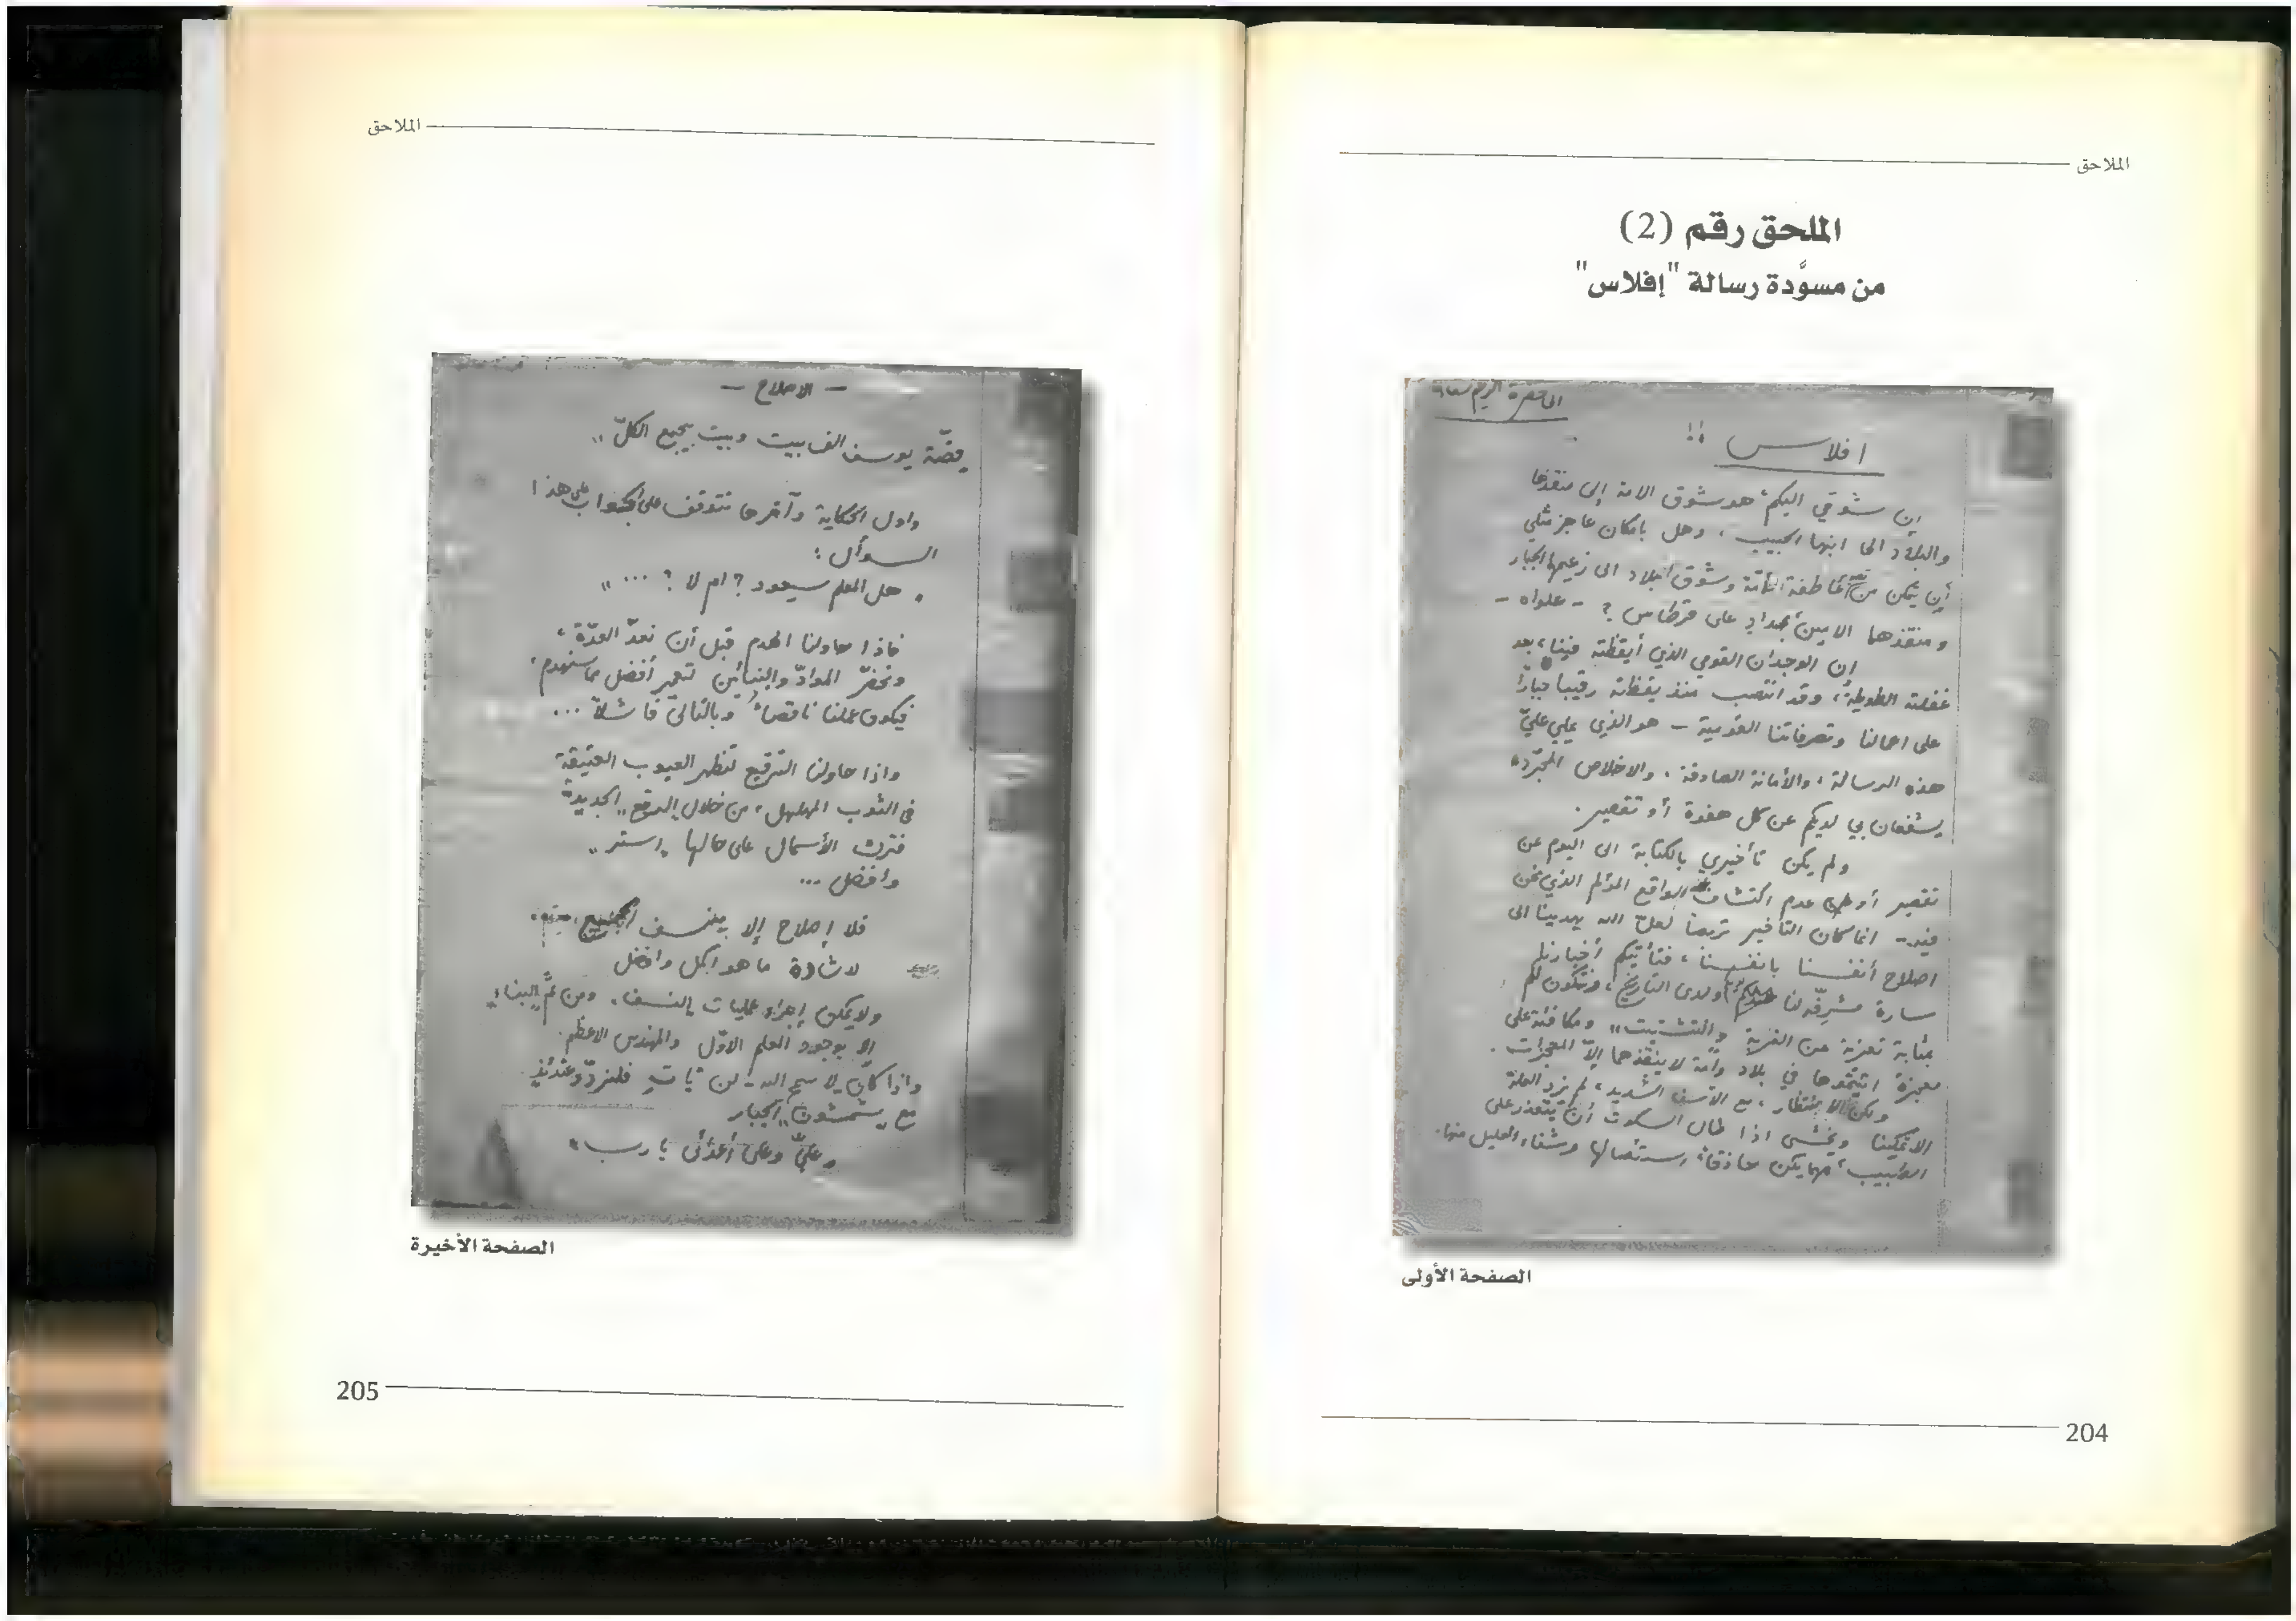 الملاحق
الملحق رقم (2)
من مسوَّدة رسالة "إفلاس"
الى حضرة الزعيم سعاده
افلاس !!
إن شوقي اليكم، هو شوق الامة إلى منقذها
والبلاد الى ابنها الحبيب، وهل بامكان عاجز مثلي
أن يتمكن من عاطفة أمّة وشوق بلاد الى زعيمها الجبار
ومنقذهما الامين بمداد على قرطاس ؟ -
ان الوجدان القومي الذي أيقظته فينا، بعد
غفلته الطويلة، وقد انتصب منذ يقظته رقيباً جباراً
على اعمالنا وتصرفاتنا القومية - هو الذي يملي عليّ
هذه الرسالة، والأمانة الصادقة، والاخلاص المجرّد،
يشفعان بي لديكم عن كل هفوة أو تقصير.
ولم يكن تأخيري بالكتابة الى اليوم عن
تقصير أو عدم اكتشاف الواقع المؤلم الذي نحن
فيه - انما كان التأخير تربصاً لعلّ الله يهدينا الى
اصلاح أنفسنا بانفسنا، فتأتيكم أخبارنا
سارة مشرِّفة لنا ولدى التاريخ، وتكون لكم
بمثابة تعزية عن الغربة و"التشتيت" ومكافئة على
معجزة اتيتموها في بلاد وأمة لا ينقذهما إلاّ المعجزات.
ولكن الانتظار، مع الاسف الشديد، لم يزد العلة
الا تمكينا ويخشى اذا طال السكوت أن يتعذر على
الطبيب، مهما يكن حاذقاً، استئصالها وشفاء العليل منها.
الصفحة الأولى
204
الملاحق
- الاصلاح -
قصّة يوسف الف بيت وبيت بيجمع الكلّ"
واول الحكاية وآخرها تتوقف على الجواب على هذا
السؤال :
"هل المعلم سيعود ؟ ام لا ؟ ... "
فاذا حاولنا الهدم قبل أن نعدّ العدّة،
ونحضّر الموادّ والبنّائين لتعمير أفضل مما سنهدم،
فيكون عملنا ناقصاً، وبالتالي فاشلاً ...
واذا حاولنا الترقيع لتظهر العيوب العتيقة
في الثوب المهلهل، من خلال "الرقع" الجديدة
فترك الأسمال على حالها "استر"
وأفضل ...
فلا إصلاح إلا بنسف الجميع
لاشادة ما هو اكمل وافضل
ولا يمكن إجراء عمليات "النسف"، ومن ثمَّ "البناء"
إلا بوجود المعلم الاوّل والمهندس الاعظم.
واذا كان لا سمح الله - لن يأتِ فلنردّد عندئذٍ
مع "شمشون" الجبار
"عليّ وعلى أعدائي يا رب"
الصفحة الأخيرة
205